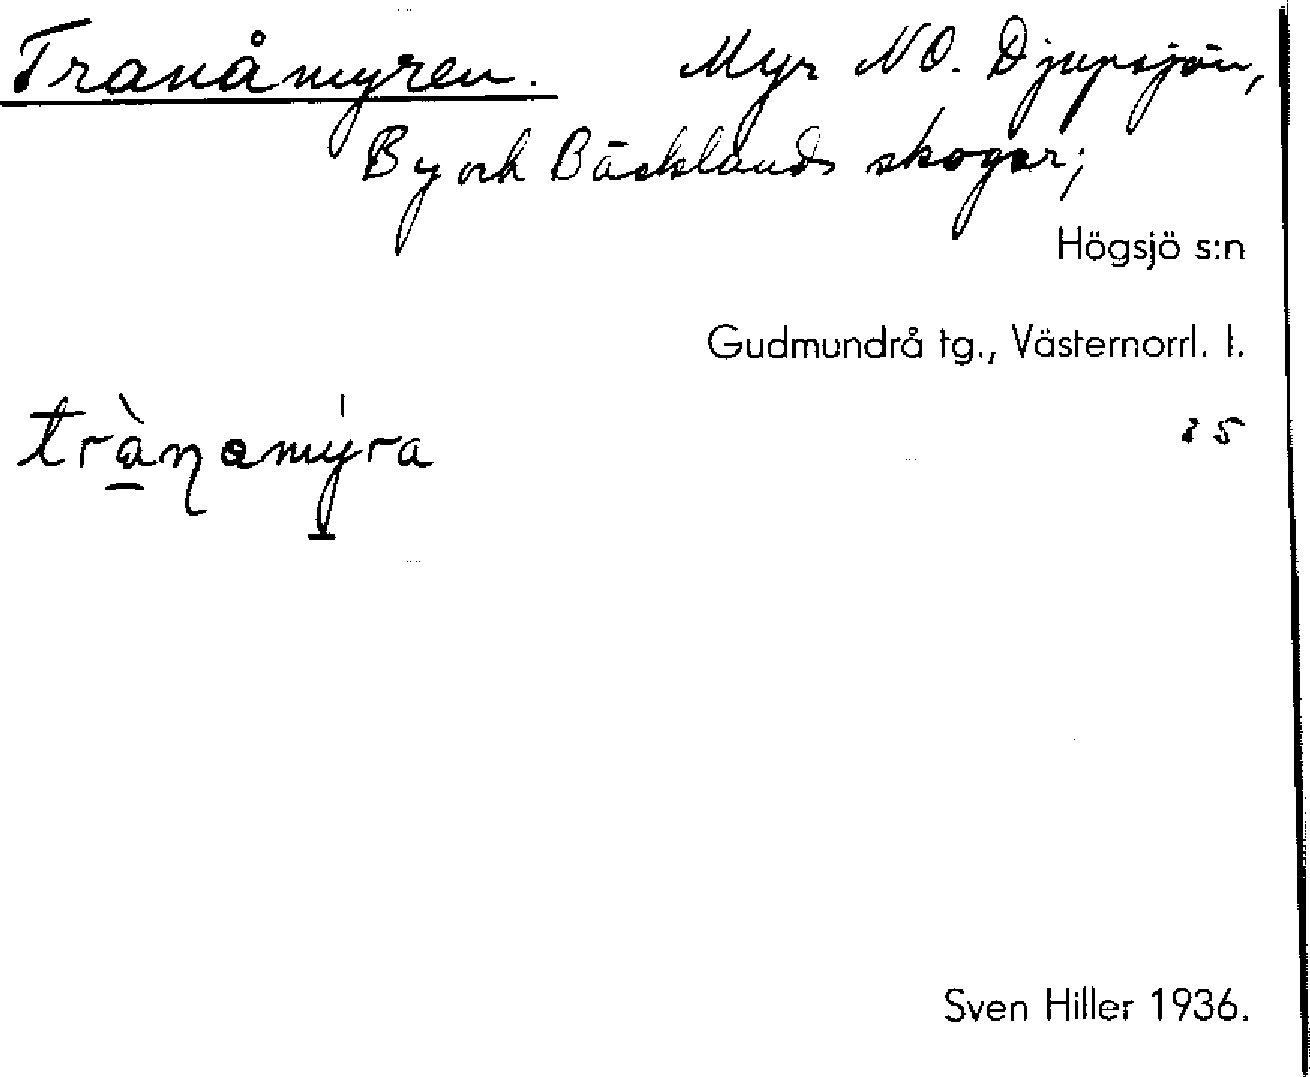 Tranåmyren. Myr NO. Djupsjön,
By och Bäcklands skogar;
Högsjö s:n
Gudmundrå tg., Västernorrl. l.
trànamýra
25
Sven Hiller 1936.